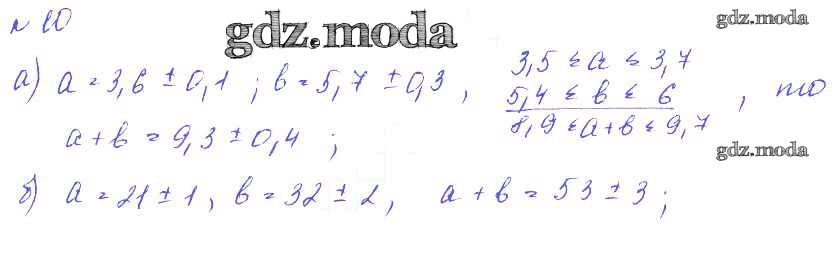 N 10
gdz.moda
gdz.moda
а) a = 3,6 ± 0,1 ; b = 5,7 ± 0,3 ,
3,5 ≤ a ≤ 3,7
5,4 ≤ b ≤ 6
8,9 ≤ a + b ≤ 9,7
, то
a + b = 9,3 ± 0,4 ;
gdz.moda
б) a = 21 ± 1 , b = 32 ± 2 , a + b = 53 ± 3 ;